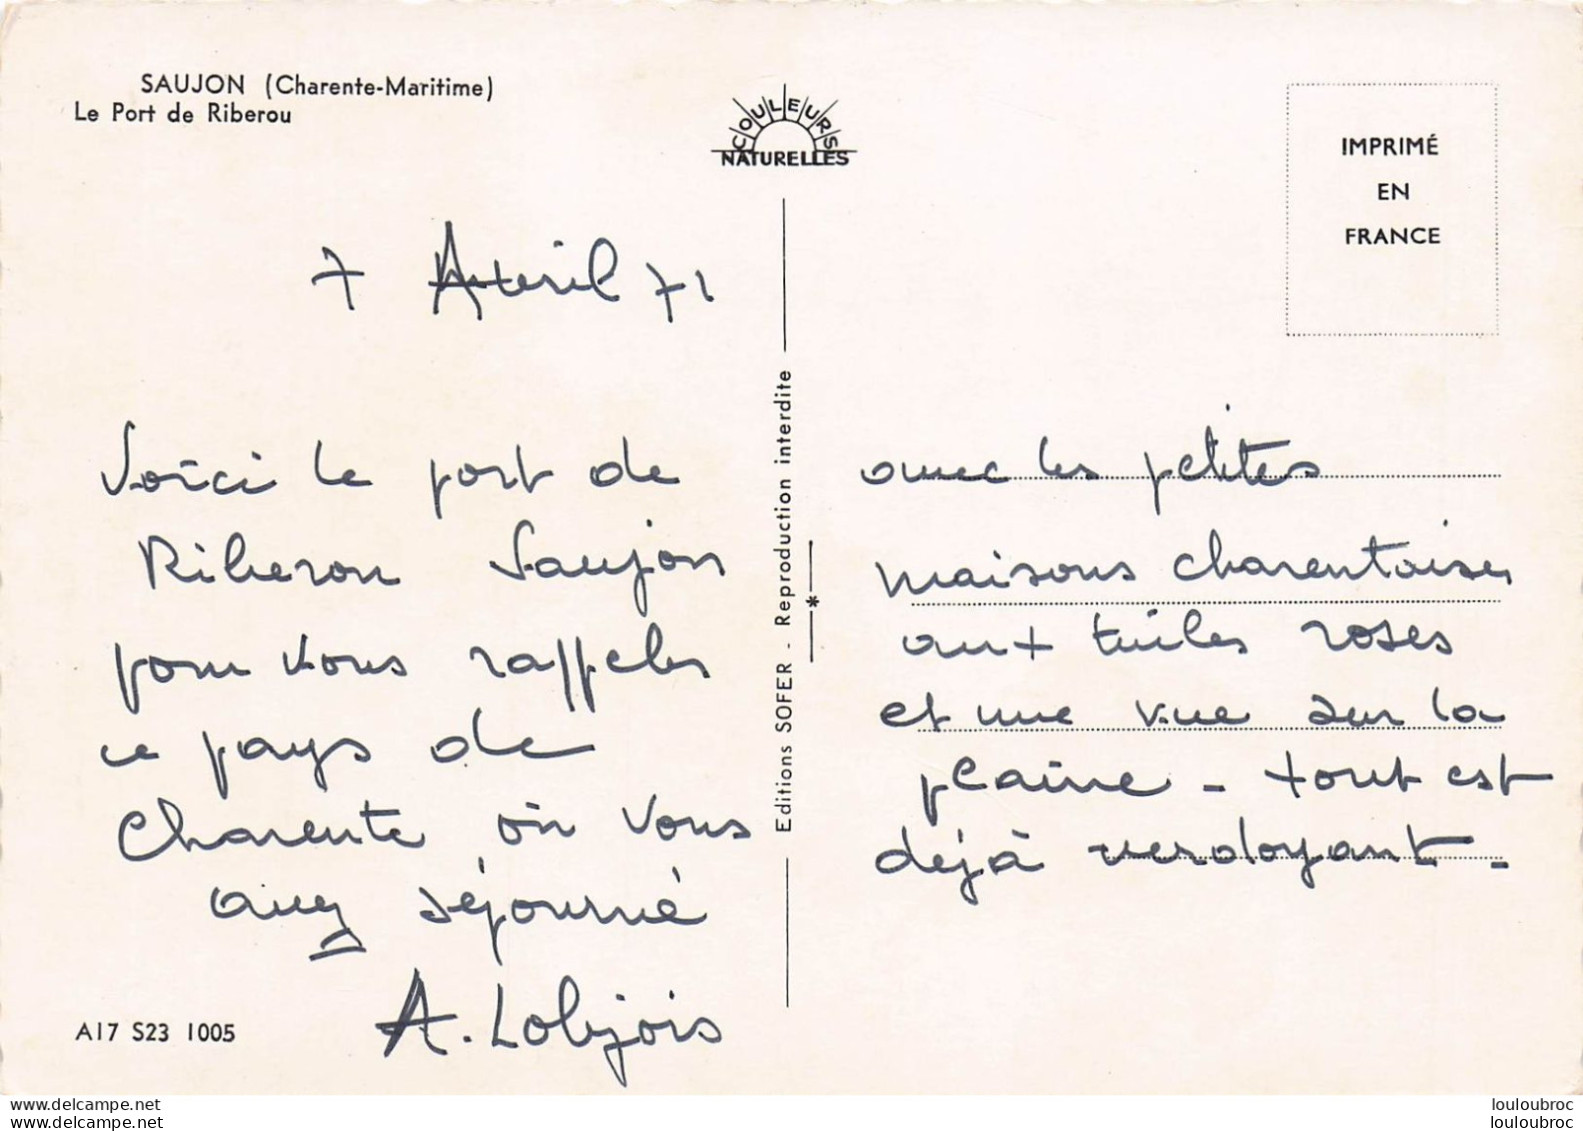 SAUJON (Charente-Maritime)
Le Port de Riberou
COULEURS
NATURELLES
IMPRIMÉ
EN
FRANCE
7 Avril 71
Voici le port de
Riberou Saujon
pour vous rappeler
ce pays de
Charente où vous
avez séjourné
A. Lobjois
A17 S23 1005
Editions SOFER - Reproduction interdite
*
avec les petites
maisons charentaises
aux tuiles roses
et une vue sur la
plaine - tout est
déjà verdoyant -
delcampe.net
louloubroc
delcampe.net
louloubroc